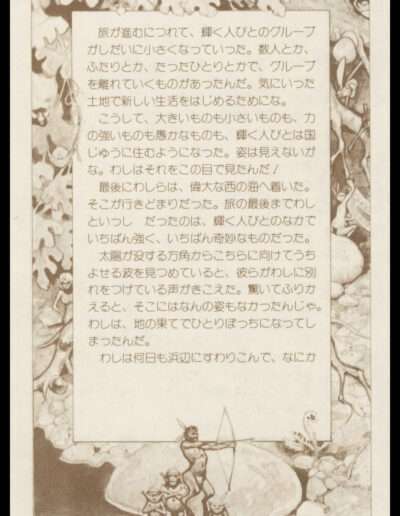 旅が進むにつれて、輝く人びとのグループ
がしだいに小さくなっていった。数人とか、
ふたりとか、たったひとりとかで、グループ
を離れていくものがあったんだ。気にいった
土地で新しい生活をはじめるためにな。
こうして、大きいものも小さいものも、力
の強いものも愚かなものも、輝く人びとは国
じゅうに住むようになった。姿は見えないが
な。わしはそれをこの目で見たんだ!
最後にわしらは、偉大な西の海へ着いた。
そこが行きどまりだった。旅の最後までわし
といっし だったのは、輝く人びとのなかで
いちばん強く、いちばん奇妙なものだった。
太陽が没する方角からこちらに向けてうち
よせる波を見つめていると、彼らがわしに別
れをつげている声がきこえた。驚いてふりか
えると、そこにはなんの姿もなかったんじゃ。
わしは、地の果てでひとりぼっちになってし
まったんだ。
わしは何日も浜辺にすわりこんで、なにか